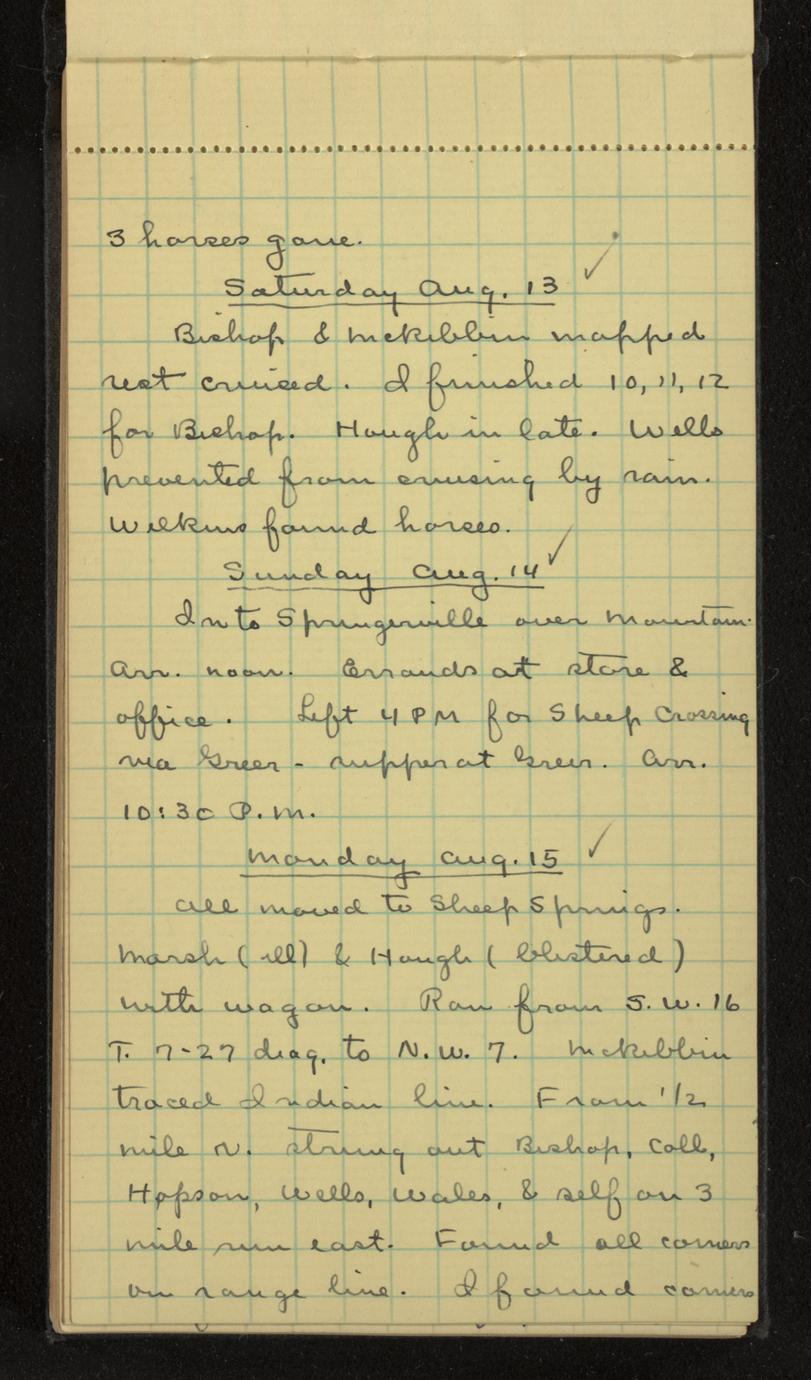 3 horses gone.
Saturday Aug. 13
Bishop & McKibbin mapped
rest cruised. I finished 10, 11, 12
for Bishop. Hough in late. Wells
prevented from cruising by rain.
Wilkins found horses.
Sunday Aug. 14
In to Springerville over mountain.
Arr. noon. Errands at store &
office. Left 4 PM for Sheep Crossing
via Greer - supper at Greer. Arr.
10:30 P.M.
Monday Aug. 15
All moved to Sheep Springs.
Marsh (ill) & Hough (blistered)
with wagon. Ran from S.W. 16
T. 7-27 diag. to N.W. 7. McKibbin
traced Indian line. From 1/2
mile N. strung out Bishop, Coll,
Hopson, Wells, Wales, & self on 3
mile run east. Found all corners
on range line. I found corners